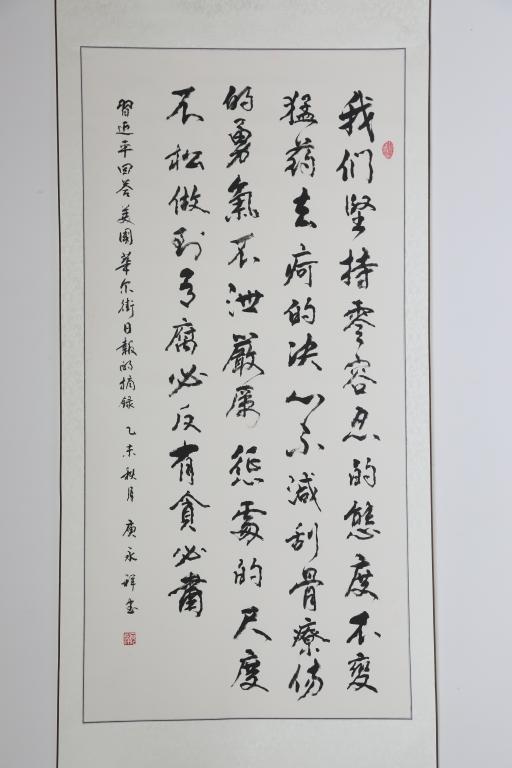 我们坚持零容忍的态度不变
猛药去疴的决心不减刮骨療伤
的勇氣不泄嚴厲惩處的尺度
不松做到有腐必反有貪必肅
習近平回答美國華尔街日報的摘録 乙未秋月 庚永祥书